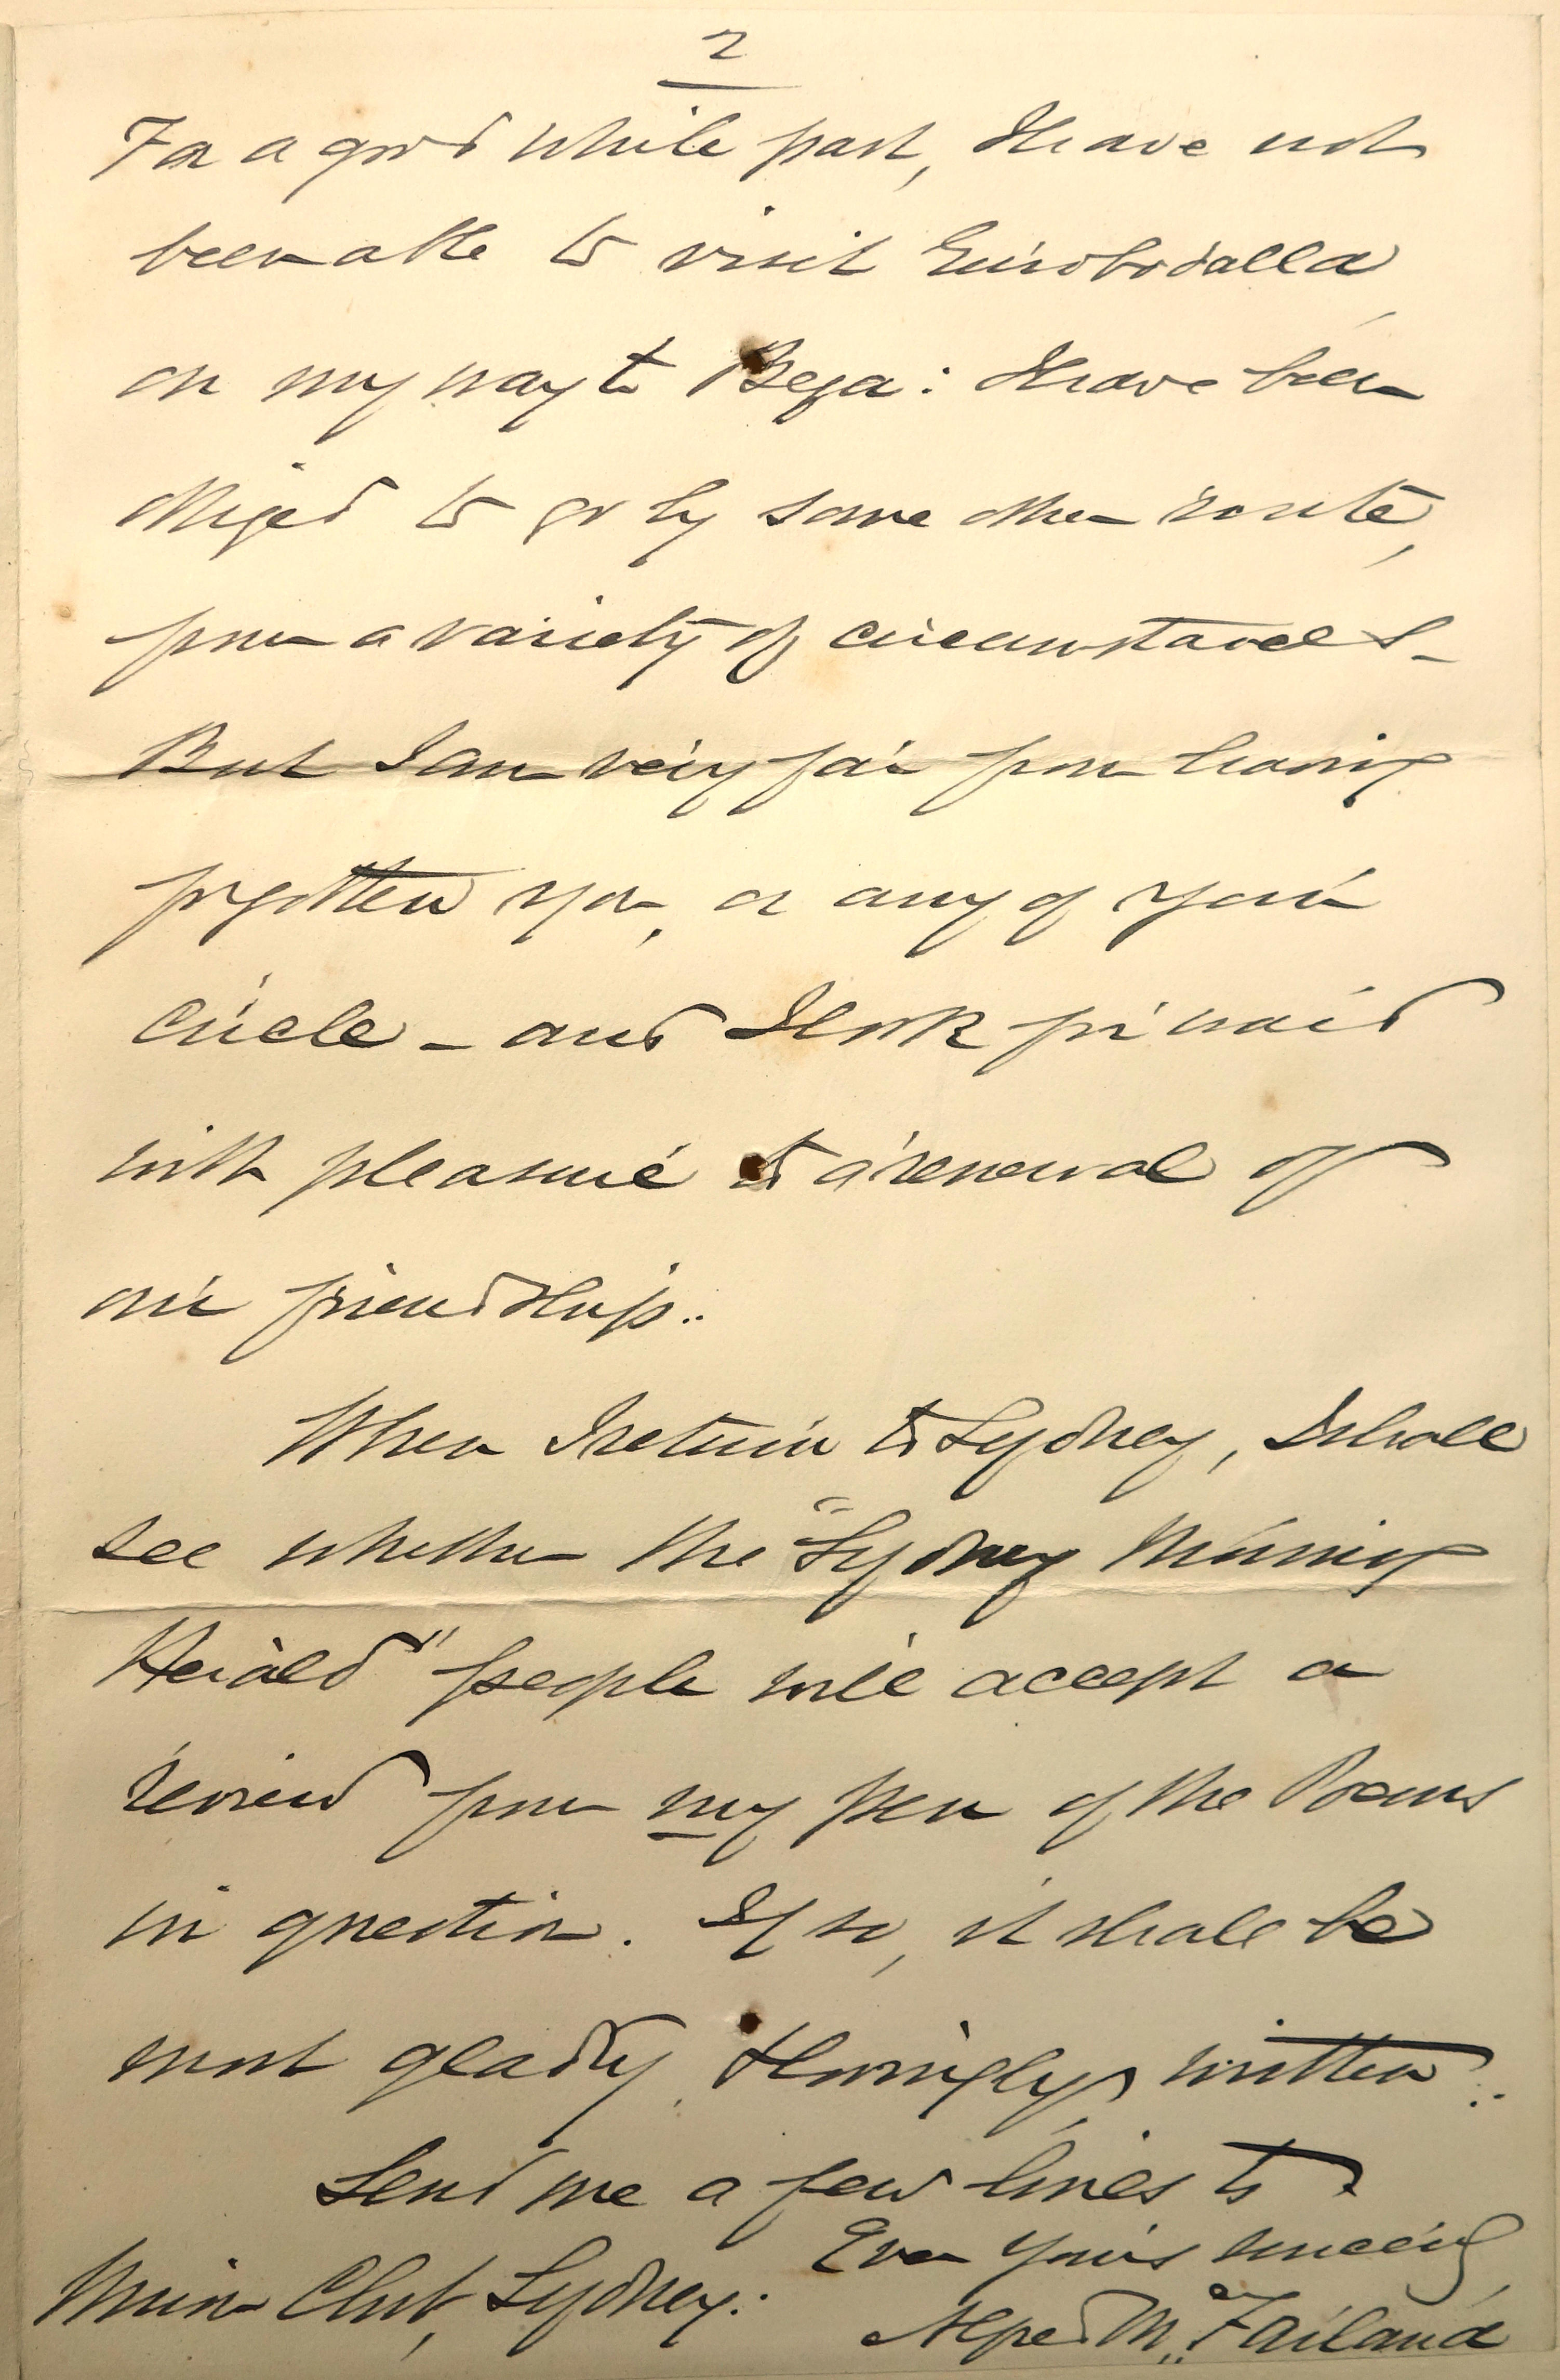 2
For a good while past, I have not
been able to visit Eurobodalla
on my way to Bega: I have been
obliged to go by some other route,
from a variety of circumstances -
But I am very far from having
forgotten you, or any of your
circle - and I look forward
with pleasure to a renewal of
our friendship..
When I return to Sydney, I shall
see whether the "Sydney Morning
Herald" people will accept a
review from my pen of the Poems
in question. If so, it shall be
most gladly, & lovingly, written..
Send me a few lines to
Union Club, Sydney:
Ever yours sincerely
Alfred M.